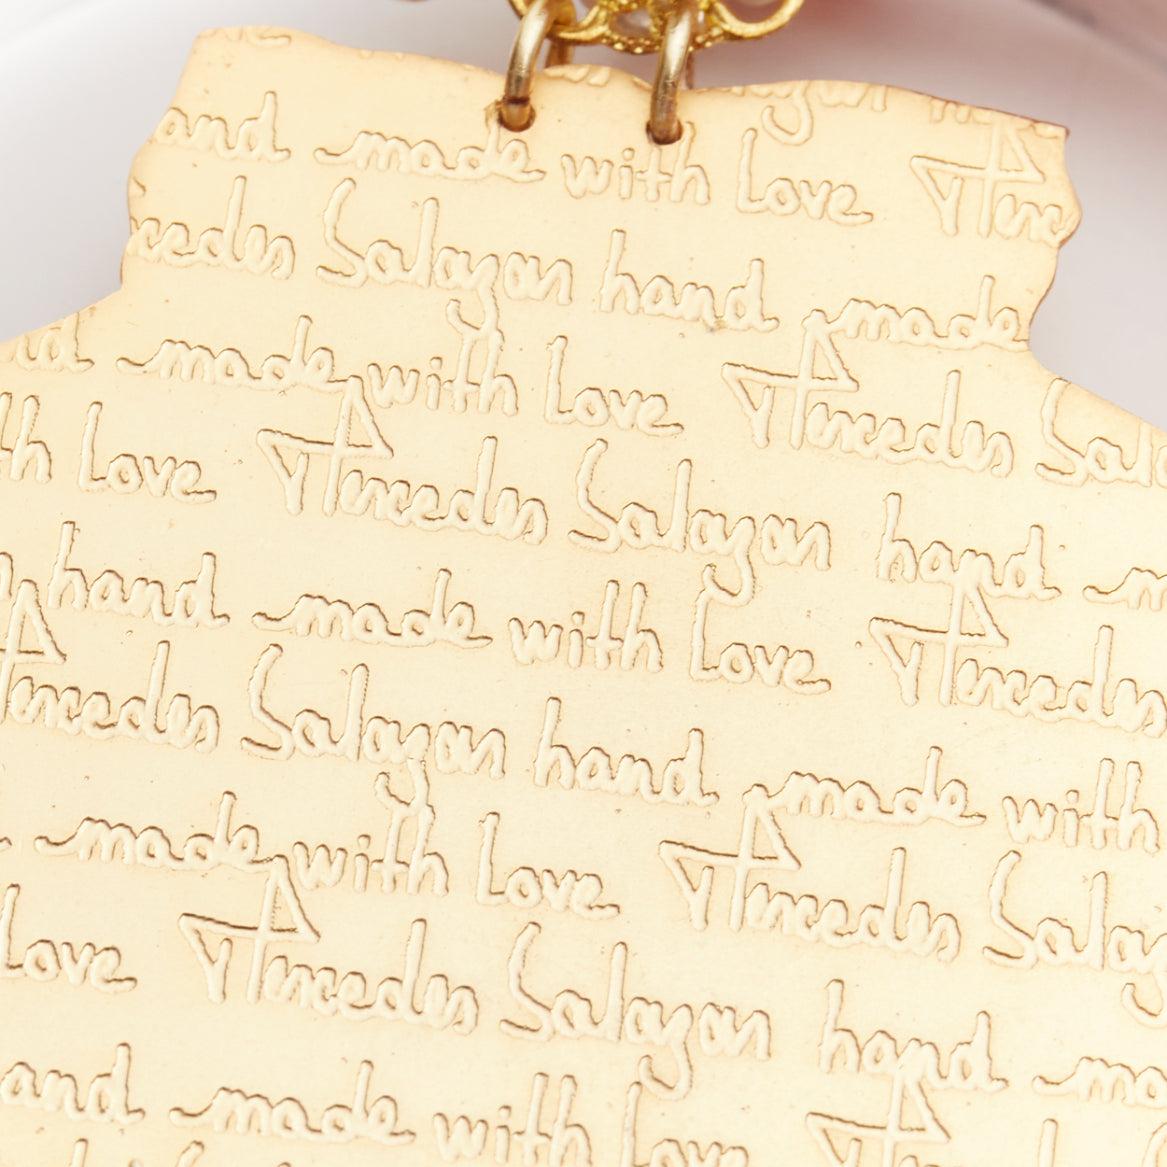 and made with Love Merc
rcedes Salazar hand made
made with Love Mercedes Sala
th Love Mercedes Salazar hand m
hand made with Love Mercedes
Mercedes Salazar hand made with
made with Love Mercedes Salaz
Love Mercedes Salazar hand ma
and made with Love